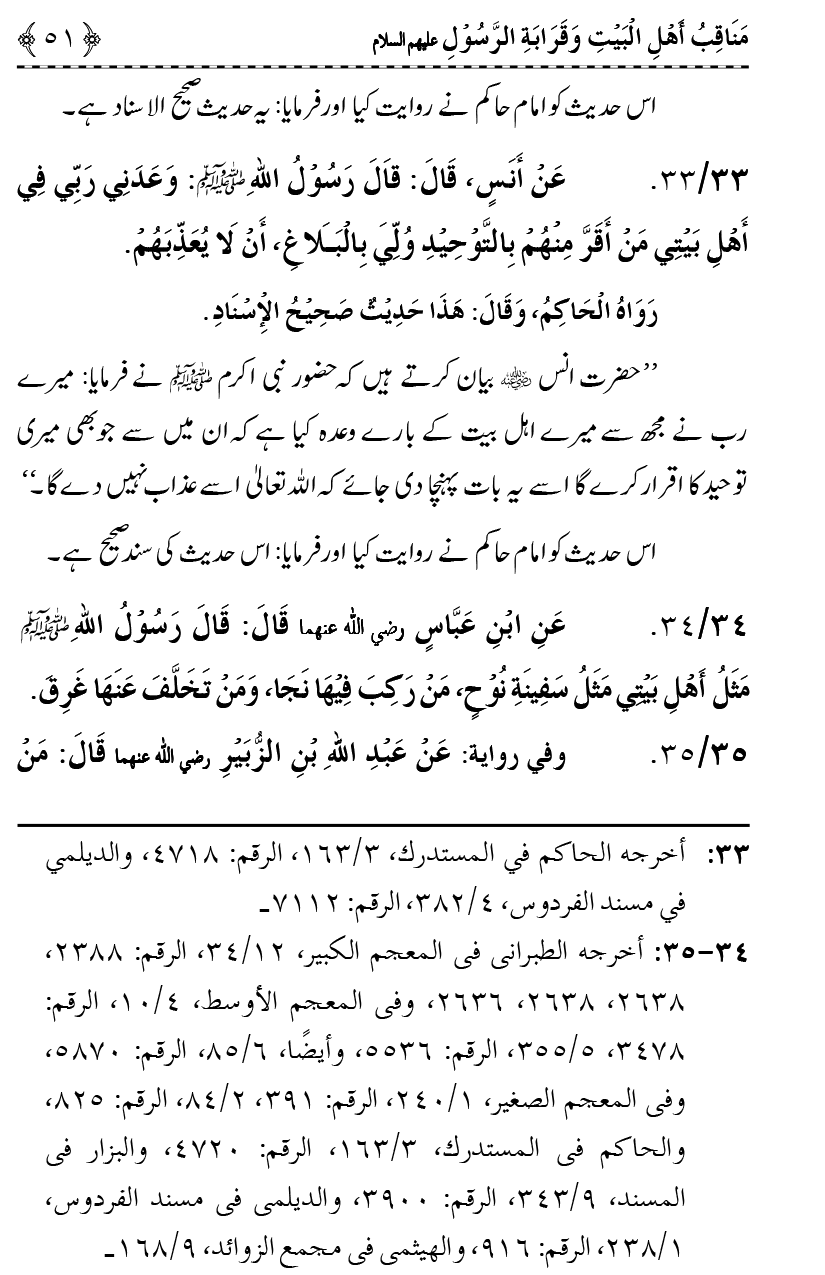 مَنَاقِبُ أَهْلِ الْبَيْتِ وَقَرَابَةِ الرَّسُوْلِ عليهم السلام ﴿٥١﴾
اس حدیث کو امام حاکم نے روایت کیا اور فرمایا: یہ حدیث صحیح الاسناد ہے۔
٣٣/٣٣. عَنْ أَنَسٍ، قَالَ: قَالَ رَسُوْلُ اللهِ ﷺ: وَعَدَنِي رَبِّي فِي
أَهْلِ بَيْتِي مَنْ أَقَرَّ مِنْهُمْ بِالتَّوْحِيْدِ وُلِّيَ بِالْبَلَاغِ، أَنْ لَا يُعَذِّبَهُمْ.
رَوَاهُ الْحَاكِمُ، وَقَالَ: هَذَا حَدِيْثٌ صَحِيْحُ الْإِسْنَادِ.
’’حضرت انس رضی اللہ عنہ بیان کرتے ہیں کہ حضور نبی اکرم ﷺ نے فرمایا: میرے
رب نے مجھ سے میرے اہل بیت کے بارے وعدہ کیا ہے کہ ان میں سے جو بھی میری
توحید کا اقرار کرے گا اسے یہ بات پہنچا دی جائے کہ اللہ تعالیٰ اسے عذاب نہیں دے گا۔‘‘
اس حدیث کو امام حاکم نے روایت کیا اور فرمایا: اس حدیث کی سند صحیح ہے۔
٣٤/٣٤. عَنِ ابْنِ عَبَّاسٍ رضي الله عنهما قَالَ: قَالَ رَسُوْلُ اللهِ ﷺ
مَثَلُ أَهْلِ بَيْتِي مَثَلُ سَفِيْنَةِ نُوْحٍ، مَنْ رَكِبَ فِيْهَا نَجَا، وَمَنْ تَخَلَّفَ عَنْهَا غَرِقَ.
٣٥/٣٥. وفي رواية: عَنْ عَبْدِ اللهِ بْنِ الزُّبَيْرِ رضي الله عنهما قَالَ: مَنْ
٣٣: أخرجه الحاكم في المستدرك، ٣/١٦٣، الرقم: ٤٧١٨، والديلمي
في مسند الفردوس، ٤/٣٨٢، الرقم: ٧١١٢ـ
٣٤-٣٥: أخرجه الطبرانى فى المعجم الكبير، ١٢/٣٤، الرقم: ٢٣٨٨،
٢٦٣٨، ٢٦٣٨، ٢٦٣٦، وفى المعجم الأوسط، ٤/١٠، الرقم:
٣٤٧٨، ٥/٣٥٥، الرقم: ٥٥٣٦، وأيضًا، ٦/٨٥، الرقم: ٥٨٧٠،
وفى المعجم الصغير، ١/٢٤٠، الرقم: ٣٩١، ٢/٨٤، الرقم: ٨٢٥،
والحاكم فى المستدرك، ٣/١٦٣، الرقم: ٤٧٢٠، والبزار فى
المسند، ٩/٣٤٣، الرقم: ٣٩٠٠، والديلمى فى مسند الفردوس،
١/٢٣٨، الرقم: ٩١٦، والهيثمى فى مجمع الزوائد، ٩/١٦٨ـ